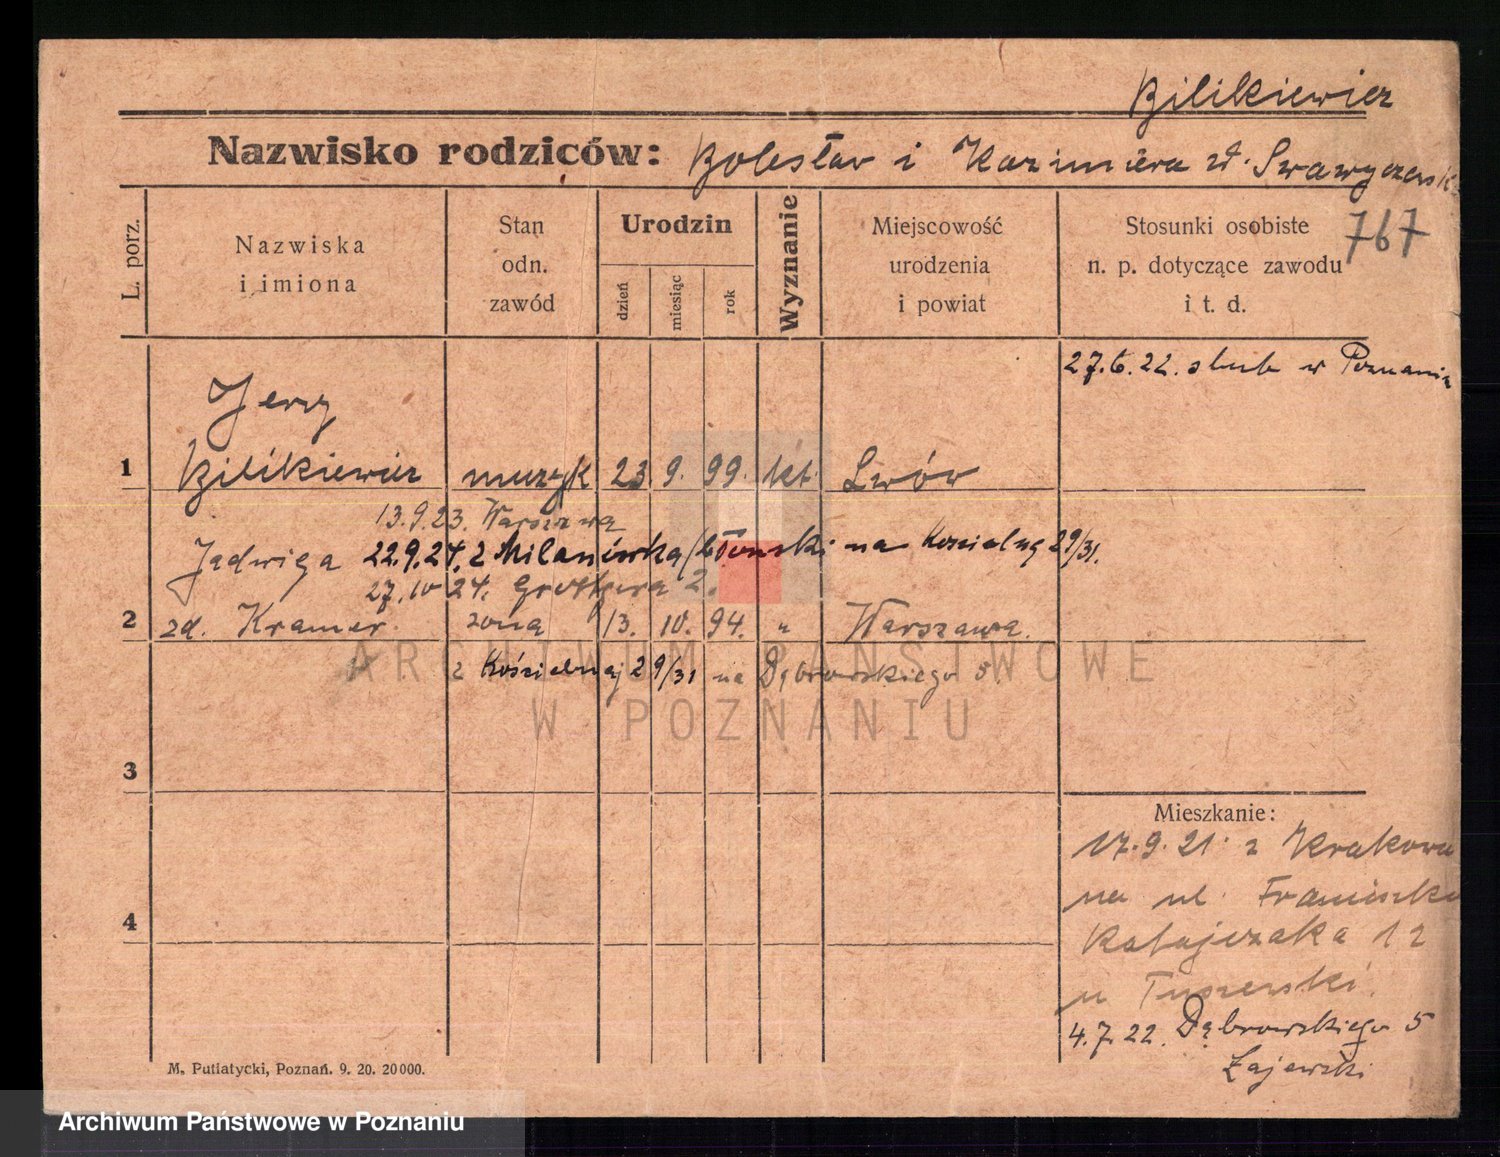 Bilikiewicz
Nazwisko rodziców: Bolesław i Kazimiera zd.
L. porz.
Nazwiska
i imiona
Stan
odn.
zawód
Urodzin
dzień
miesiąc
rok
Wyznanie
Miejscowość
urodzenia
i powiat
Stosunki osobiste
n. p. dotyczące zawodu
i t. d.
767
27.6.22. ślub w Poznaniu
Jerzy
1 Bilikiewicz muzyk 23 9. 99. kt. Lwów
13.9.23. Warszawa
Jadwiga 22.9.24. z Milanówka/Błonski na Kościelną 29/31.
27.10 24. Grottgera 2.
2 zd. Kramer. żona 13. 10. 94. " Warszawa.
z Kościelnej 29/31 na Dąbrowskiego 5.
ARCHIWUM PAŃSTWOWE
W POZNANIU
3
Mieszkanie:
17.9.21. z Krakowa
na ul. Franciszka
Ratajczaka 12
u
4.7.22. Dąbrowskiego 5
Łajewski
4
M. Putiatycki, Poznań. 9. 20. 20000.
Archiwum Państwowe w Poznaniu